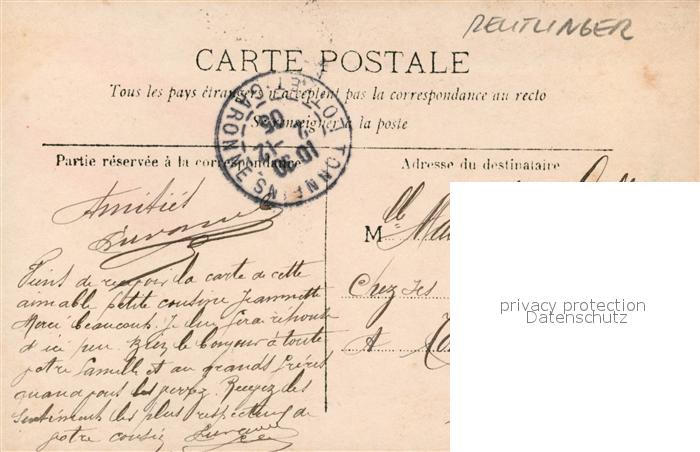 REUTLINGER
CARTE POSTALE
Tous les pays étrangers n'acceptent pas la correspondance au recto
Se renseigner à la poste
TONNEINS LOT-ET-GARONNE
10 30
2 -12
05
Partie réservée à la correspondance
Adresse du destinataire
Amitiés
Viens de recevoir la carte de cette
aimable petite cousine Jeannette
Merci beaucoup. Je lui ferai réponse
d'ici peu. Bien le bonjour à toute
votre famille et au grands frères
quand vous les verrez. Recevez les
sentiments les plus respectueux de
votre cousin
M lle
Chez ses
A
privacy protection
Datenschutz